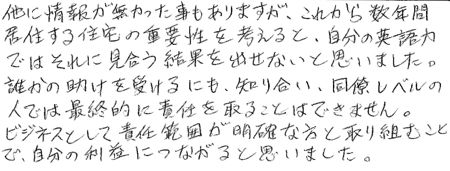 他に情報が無かった事もありますが、これから数年間
居住する住宅の重要性を考えると、自分の英語力
ではそれに見合う結果を出せないと思いました。
誰かの助けを受けるにも、知り合い、同僚レベルの
人では最終的に責任を取ることはできません。
ビジネスとして責任範囲が明確な方と取り組むこと
で、自分の利益につながると思いました。